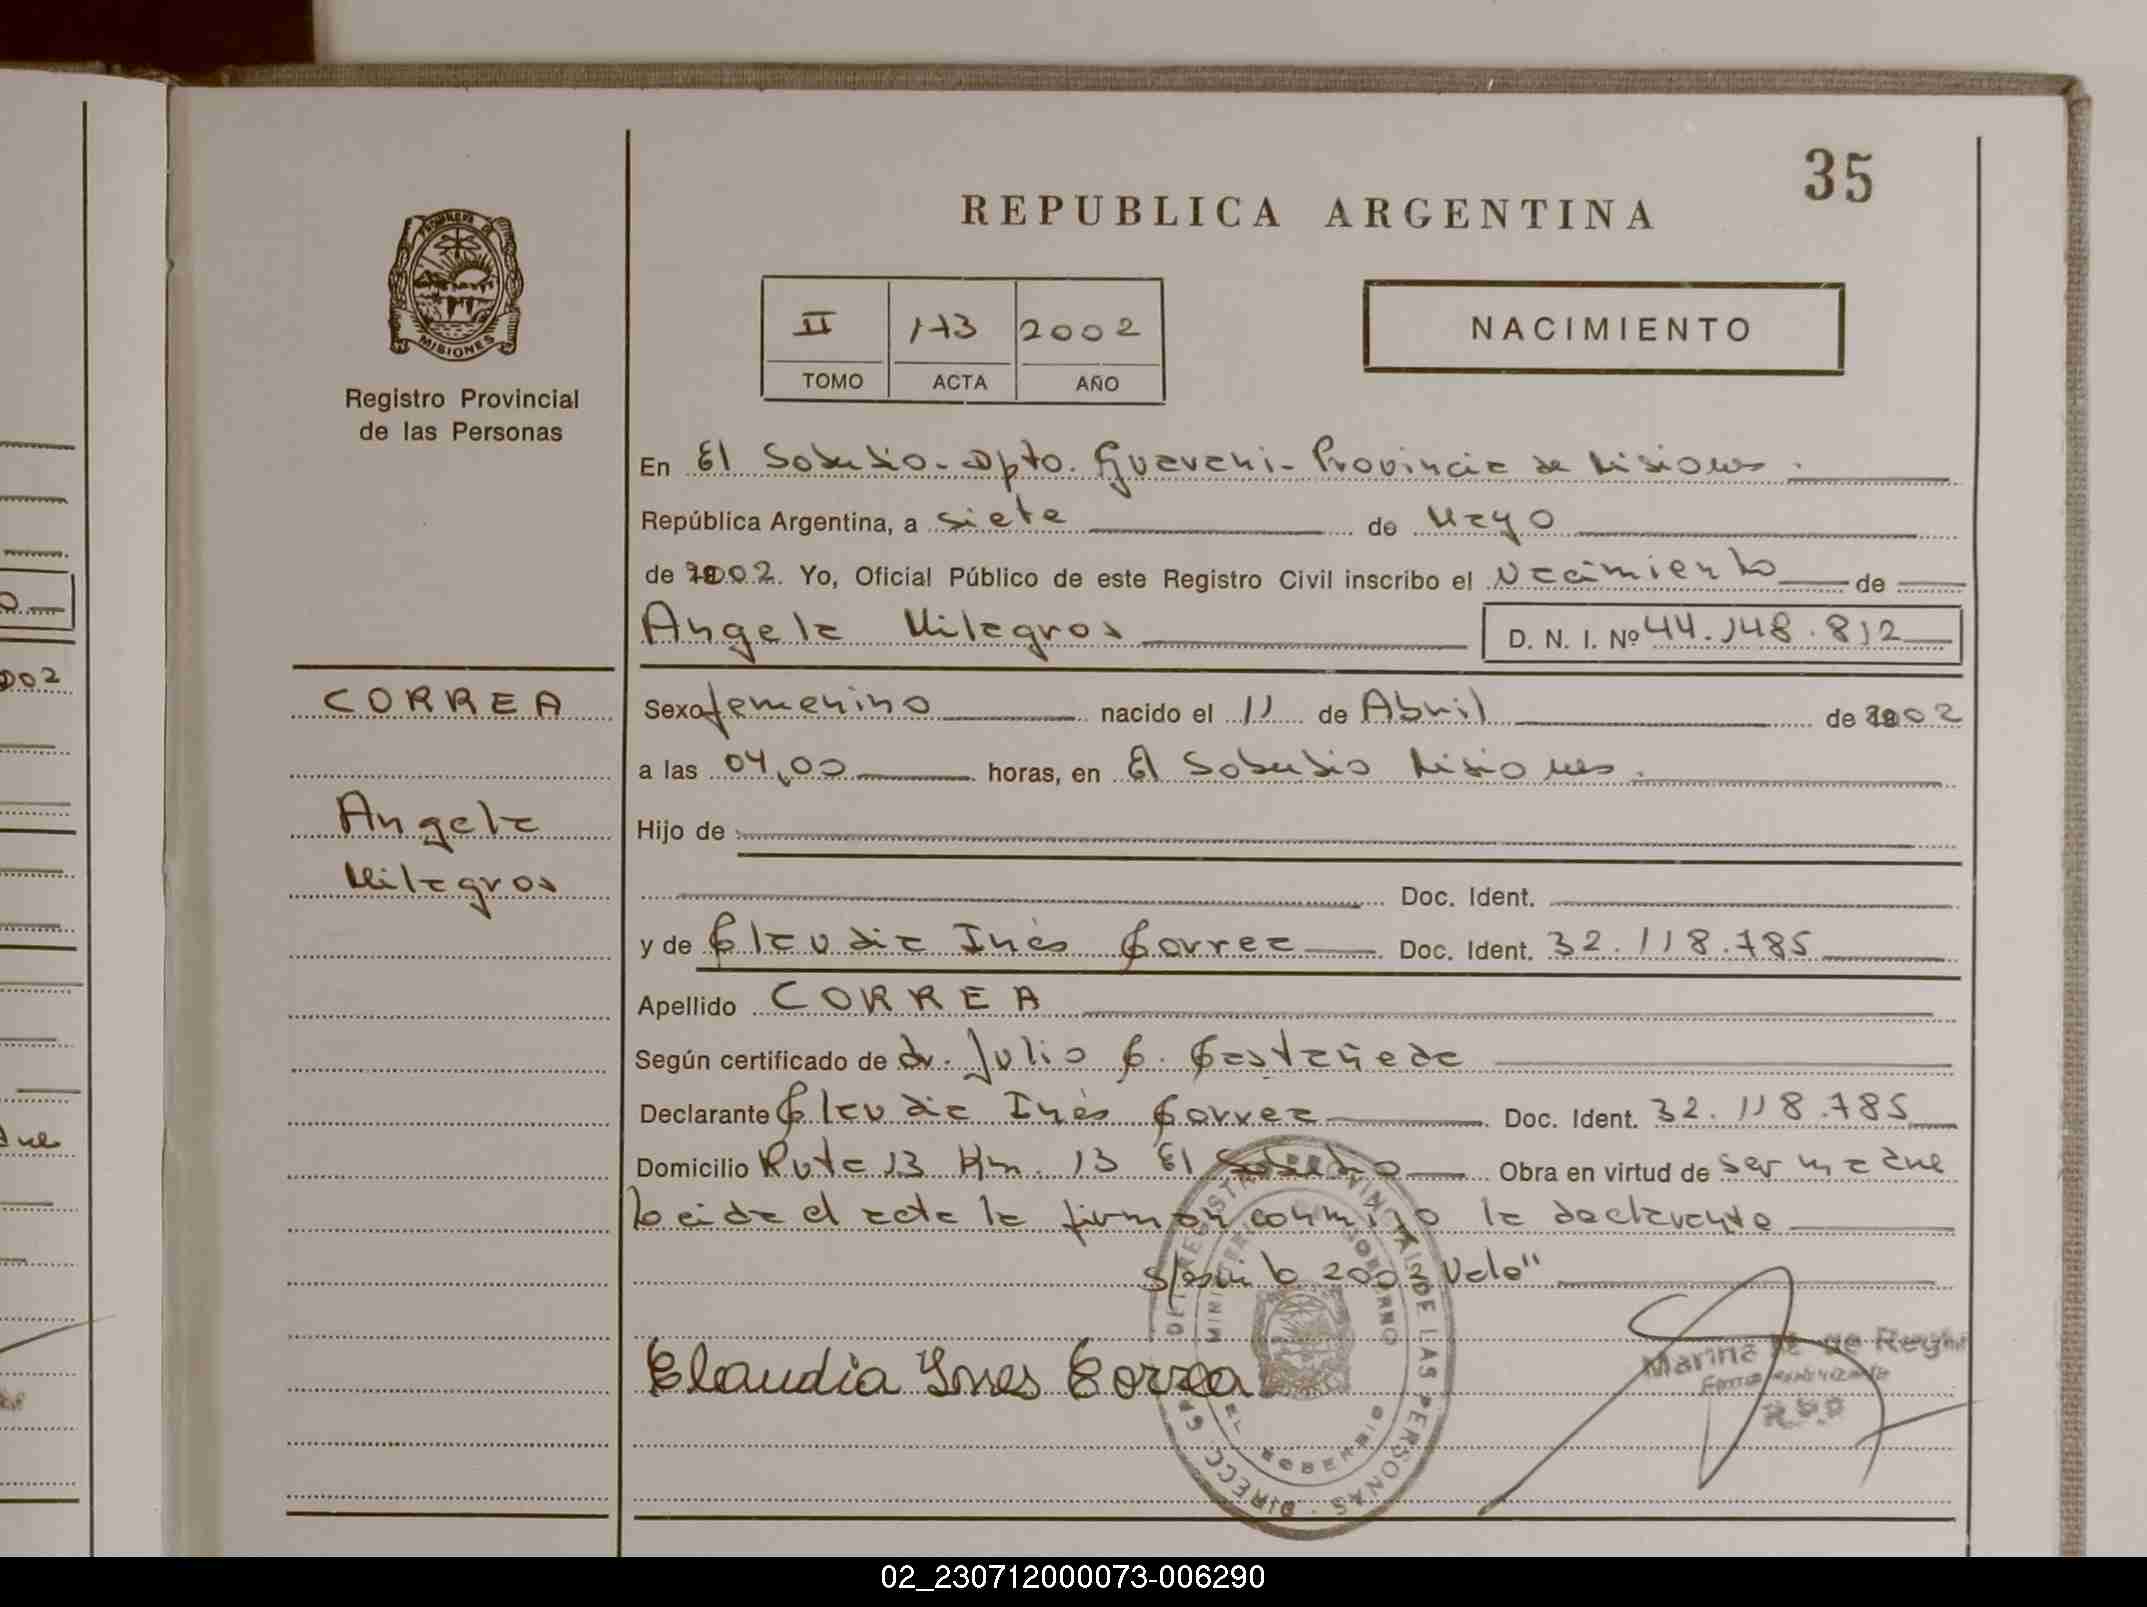 35
REPUBLICA ARGENTINA
PROVINCIA DE
MISIONES
Registro Provincial
de las Personas
II 173 2002
TOMO ACTA AÑO
NACIMIENTO
En El Soberbio - Dpto. Guarani - Provincia de Misiones.
República Argentina, a siete de Mayo
de 2002. Yo, Oficial Público de este Registro Civil inscribo el Nacimiento de
Angela Milagros D. N. I. Nº 44.148.812
CORREA
Angela
Milagros
Sexo femenino nacido el 11 de Abril de 2002
a las 04,00 horas, en El Soberbio Misiones.
Hijo de
Doc. Ident.
y de Claudia Inés Correa Doc. Ident. 32.118.785
Apellido CORREA
Según certificado de dr. Julio C. Castañeda
Declarante Claudia Inés Correa Doc. Ident. 32.118.785
Domicilio Ruta 13 Km. 13 El Soberbio Obra en virtud de ser madre
Leida el acta la firman conmigo la declarante
2002 Vale"
Claudia Ynes Correa
Marina de
DE LAS PERSONAS
EL SOBERBIO
002
02_230712000073-006290